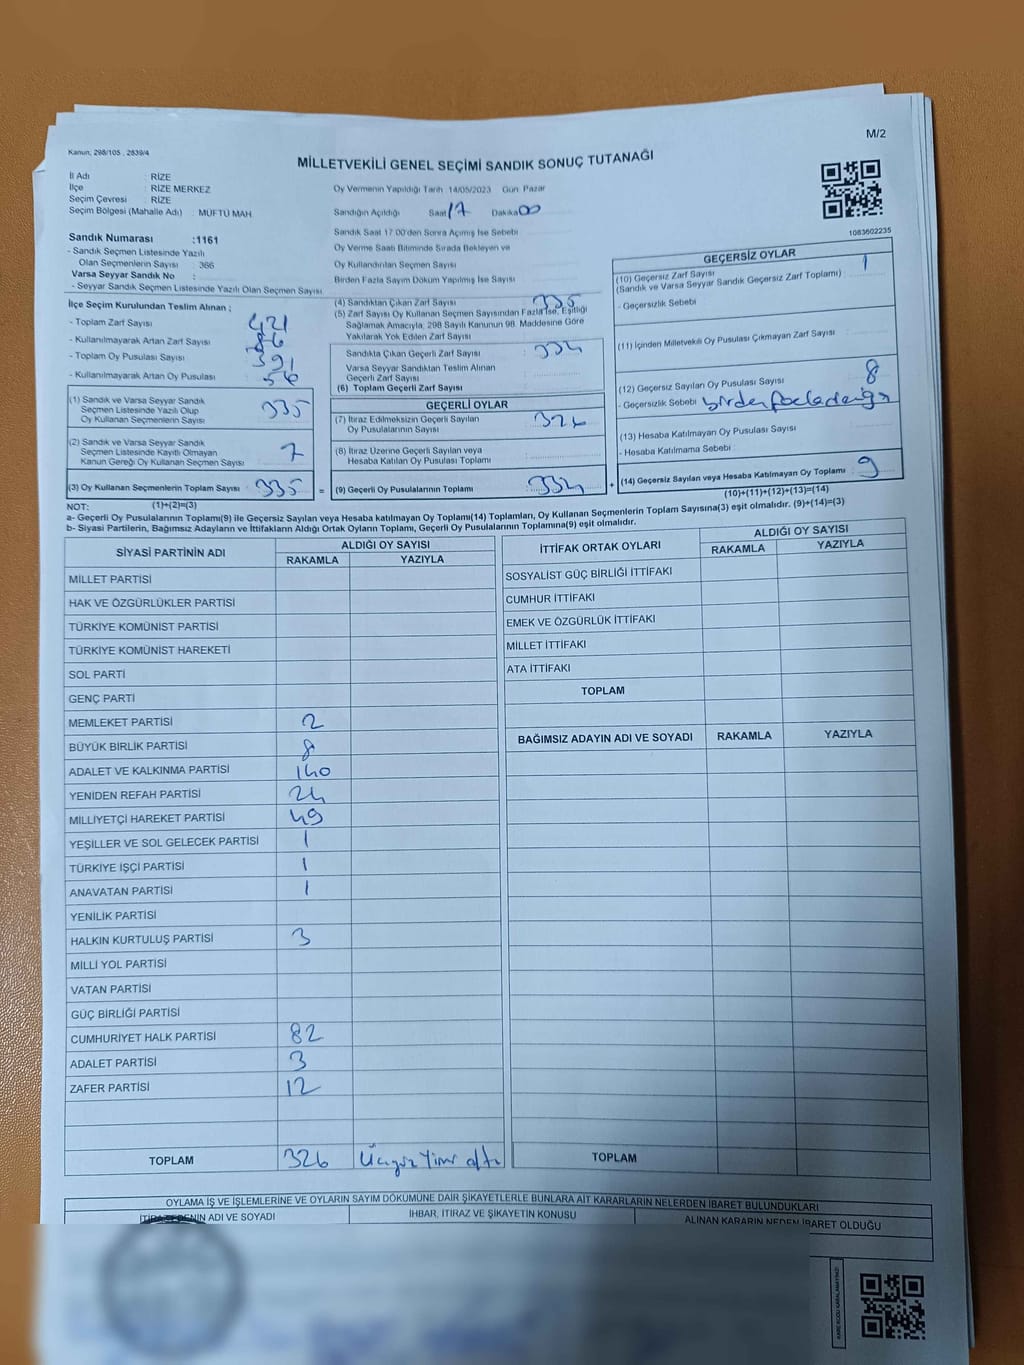 M/2
Kanun, 298/105 , 2839/4
MİLLETVEKİLİ GENEL SEÇİMİ SANDIK SONUÇ TUTANAĞI
İl Adı : RİZE
İlçe : RİZE MERKEZ
Seçim Çevresi : RİZE
Seçim Bölgesi (Mahalle Adı) : MÜFTÜ MAH
Sandık Numarası :1161
- Sandık Seçmen Listesinde Yazılı
Olan Seçmenlerin Sayısı : 366
Varsa Seyyar Sandık No :
- Seyyar Sandık Seçmen Listesinde Yazılı Olan Seçmen Sayısı
Oy Vermenin Yapıldığı Tarih 14/05/2023 Gün Pazar
Sandığın Açıldığı Saat 17 Dakika 00
Sandık Saat 17.00'den Sonra Açılmış İse Sebebi
Oy Verme Saati Bitiminde Sırada Bekleyen ve
Oy Kullandırılan Seçmen Sayısı
Birden Fazla Sayım Döküm Yapılmış İse Sayısı
1083602235
İlçe Seçim Kurulundan Teslim Alınan ;
- Toplam Zarf Sayısı 421
- Kullanılmayarak Artan Zarf Sayısı 86
- Toplam Oy Pusulası Sayısı 391
- Kullanılmayarak Artan Oy Pusulası 56
(1) Sandık ve Varsa Seyyar Sandık
Seçmen Listesinde Yazılı Olup
Oy Kullanan Seçmenlerin Sayısı 335
(2) Sandık ve Varsa Seyyar Sandık
Seçmen Listesinde Kayıtlı Olmayan
Kanun Gereği Oy Kullanan Seçmen Sayısı
(3) Oy Kullanan Seçmenlerin Toplam Sayısı 335 =
(4) Sandıktan Çıkan Zarf Sayısı 335
(5) Zarf Sayısı Oy Kullanan Seçmen Sayısından Fazla İse, Eşitliği
Sağlamak Amacıyla, 298 Sayılı Kanunun 98. Maddesine Göre
Yakılarak Yok Edilen Zarf Sayısı
Sandıkta Çıkan Geçerli Zarf Sayısı 334
Varsa Seyyar Sandıktan Teslim Alınan
Geçerli Zarf Sayısı
(6) Toplam Geçerli Zarf Sayısı
GEÇERLİ OYLAR
(7) İtiraz Edilmeksizin Geçerli Sayılan
Oy Pusulalarının Sayısı 326
(8) İtiraz Üzerine Geçerli Sayılan veya
Hesaba Katılan Oy Pusulası Toplamı
(9) Geçerli Oy Pusulalarının Toplamı 334 +
GEÇERSİZ OYLAR
(10) Geçersiz Zarf Sayısı 1
(Sandık ve Varsa Seyyar Sandık Geçersiz Zarf Toplamı)
- Geçersizlik Sebebi
(11) İçinden Milletvekili Oy Pusulası Çıkmayan Zarf Sayısı
(12) Geçersiz Sayılan Oy Pusulası Sayısı 8
- Geçersizlik Sebebi birden fazla
(13) Hesaba Katılmayan Oy Pusulası Sayısı
- Hesaba Katılmama Sebebi
(14) Geçersiz Sayılan veya Hesaba Katılmayan Oy Toplamı 9
(10)+(11)+(12)+(13)=(14)
NOT: (1)+(2)=(3)
a- Geçerli Oy Pusulalarının Toplamı(9) ile Geçersiz Sayılan veya Hesaba katılmayan Oy Toplamı(14) Toplamları, Oy Kullanan Seçmenlerin Toplam Sayısına(3) eşit olmalıdır. (9)+(14)=(3)
b- Siyasi Partilerin, Bağımsız Adayların ve İttifakların Aldığı Ortak Oyların Toplamı, Geçerli Oy Pusulalarının Toplamına(9) eşit olmalıdır.
SİYASİ PARTİNİN ADI
ALDIĞI OY SAYISI
RAKAMLA YAZIYLA
MİLLET PARTİSİ
HAK VE ÖZGÜRLÜKLER PARTİSİ
TÜRKİYE KOMÜNİST PARTİSİ
TÜRKİYE KOMÜNİST HAREKETİ
SOL PARTİ
GENÇ PARTİ
MEMLEKET PARTİSİ 2
BÜYÜK BİRLİK PARTİSİ 8
ADALET VE KALKINMA PARTİSİ 140
YENİDEN REFAH PARTİSİ 24
MİLLİYETÇİ HAREKET PARTİSİ 49
YEŞİLLER VE SOL GELECEK PARTİSİ 1
TÜRKİYE İŞÇİ PARTİSİ 1
ANAVATAN PARTİSİ 1
YENİLİK PARTİSİ
HALKIN KURTULUŞ PARTİSİ 3
MİLLİ YOL PARTİSİ
VATAN PARTİSİ
GÜÇ BİRLİĞİ PARTİSİ
CUMHURİYET HALK PARTİSİ 82
ADALET PARTİSİ 3
ZAFER PARTİSİ 12
TOPLAM 326 Üçyüz Yirmi altı
İTTİFAK ORTAK OYLARI
ALDIĞI OY SAYISI
RAKAMLA YAZIYLA
SOSYALİST GÜÇ BİRLİĞİ İTTİFAKI
CUMHUR İTTİFAKI
EMEK VE ÖZGÜRLÜK İTTİFAKI
MİLLET İTTİFAKI
ATA İTTİFAKI
TOPLAM
BAĞIMSIZ ADAYIN ADI VE SOYADI RAKAMLA YAZIYLA
TOPLAM
OYLAMA İŞ VE İŞLEMLERİNE VE OYLARIN SAYIM DÖKÜMÜNE DAİR ŞİKAYETLERLE BUNLARA AİT KARARLARIN NELERDEN İBARET BULUNDUKLARI
İTİRAZ EDENİN ADI VE SOYADI
İHBAR, İTİRAZ VE ŞİKAYETİN KONUSU
ALINAN KARARIN NEDEN İBARET OLDUĞU